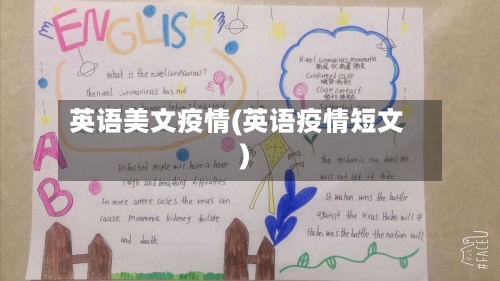 ENGLISH
what is the novel coronavirus?
The novel coronavirus has not
Novel coronavirus pneumonia
Confirmed case
Close contact
英语美文疫情(英语疫情短文
)
A
B
Infected people will have a fever
cough and breathing difficulties
In more severe cases the virus can
cause Pneumonia kidney failure
and death
The epidemic is a devil We
will not let it hide
If wuhan wins the battle
against the virus Hubei will
Hubei wins the battle the nation will
#FACEU